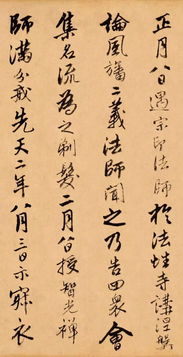 正月八日遇宗印法師於法性寺講涅槃
論風旛二義法師聞之乃告四衆會
集名流為之剃髮二月八日授智光禪
師滿分戒先天二年八月三日示寂衣